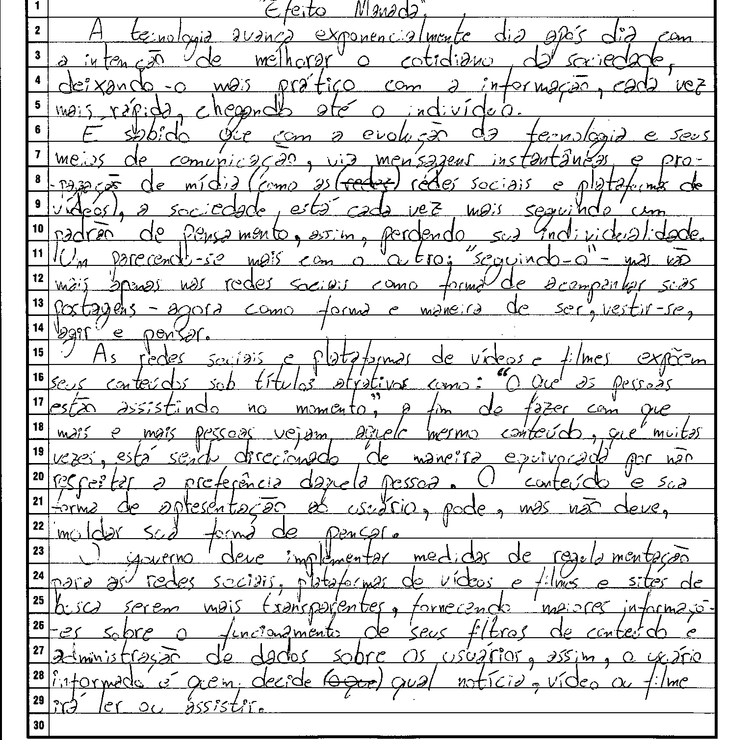 "Efeito Manada".
A tecnologia avança exponencialmente dia após dia com
a intenção de melhorar o cotidiano da sociedade,
deixando-o mais prático com a informação, cada vez
mais rápida, chegando até o indivíduo.
É sabido que com a evolução da tecnologia e seus
meios de comunicação, via mensagens instantâneas e pro-
-pagação de mídia (como as (redes) redes sociais e plataforma de
vídeos), a sociedade está cada vez mais seguindo um
padrão de pensamento, assim, perdendo sua individualidade.
Um parecendo-se mais com o outro; "seguindo-o" - mas não
mais apenas nas redes sociais como forma de acompanhar suas
postagens - agora como forma e maneira de ser, vestir-se,
agir e pensar.
As redes sociais e plataformas de vídeos e filmes expõem
seus conteúdos sob títulos atrativos como: "O que as pessoas
estão assistindo no momento", a fim de fazer com que
mais e mais pessoas vejam aquele mesmo conteúdo, que muitas
vezes, está sendo direcionado de maneira equivocada por não
respeitar a preferência daquela pessoa. O conteúdo e sua
forma de apresentação ao usuário, pode, mas não deve,
moldar sua forma de pensar.
O governo deve implementar medidas de regulamentação
para as redes sociais, plataformas de vídeos e filmes e sites de
busca serem mais transparentes, fornecendo maiores informaçõ-
-es sobre o funcionamento de seus filtros de conteúdo e
administração de dados sobre os usuários, assim, o usuário
informado é quem decide (o que) qual notícia, vídeo ou filme
irá ler ou assistir.